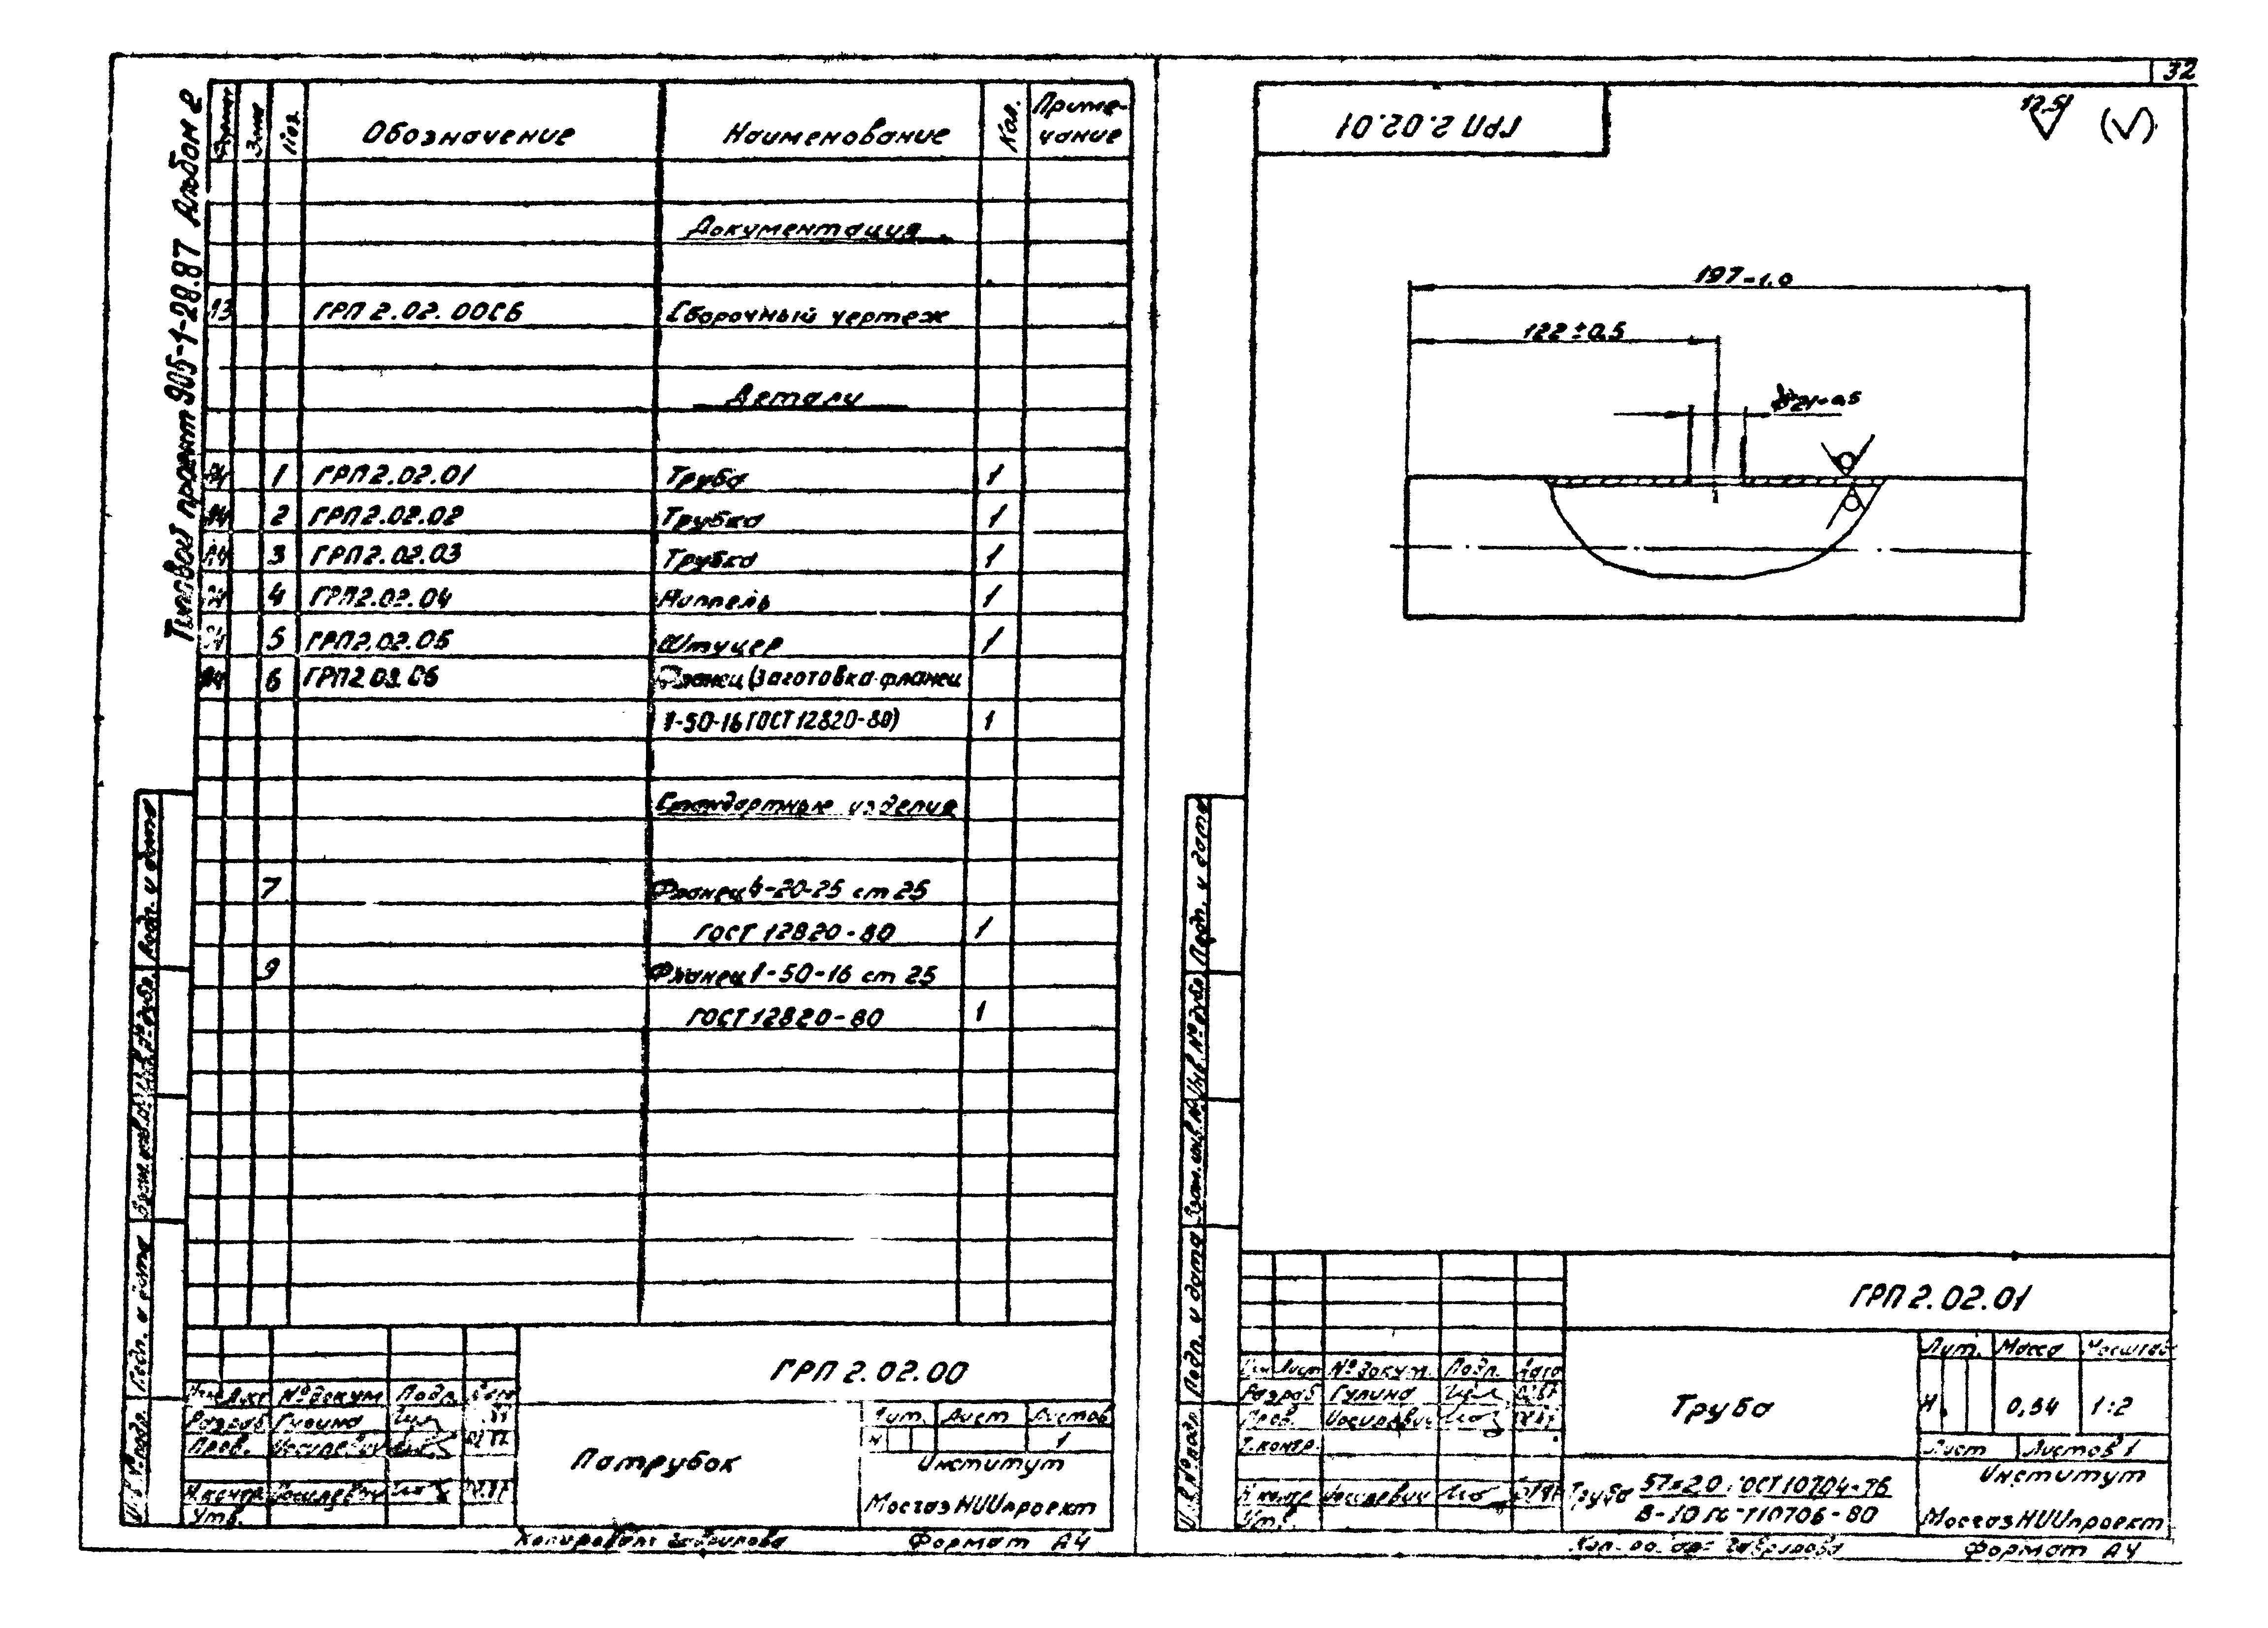 32
Типовой проект 905-1-28.87 Альбом 2
Формат Зона Поз. Обозначение Наименование Кол. Примечание
Документация
А3 ГРП 2.02.00СБ Сборочный чертеж
Детали
А4 1 ГРП 2.02.01 Труба 1
А4 2 ГРП 2.02.02 Трубка 1
А4 3 ГРП 2.02.03 Трубка 1
А4 4 ГРП 2.02.04 Ниппель 1
А4 5 ГРП 2.02.05 Штуцер 1
А4 6 ГРП 2.02.06 Фланец (заготовка-фланец
1-50-16 ГОСТ 12820-80) 1
Стандартные изделия
7 Фланец 1-20-25 ст 25
ГОСТ 12820-80 1
9 Фланец 1-50-16 ст 25
ГОСТ 12820-80 1
Подп. и дата
Взам. инв. № Инв. № дубл.
Подп. и дата
Инв. № подл.
ГРП 2.02.00
Изм Лист № докум. Подп. Дата
Разраб Гулина
Пров.
Н.контр.
Утв.
Патрубок
Лит. Лист Листов
И 1
Институт
МосгазНИИпроект
Копировал: Гаврилова Формат А4
ГРП 2.02.01
12.5 (√)
197-1,0
122±0,5
⌀21+0,5
Подп. и дата
Взам. инв. № Инв. № дубл.
Подп. и дата
Инв. № подл.
ГРП 2.02.01
Изм Лист № докум. Подп. Дата
Разраб Гулина
Пров.
Т.контр.
Н.контр
Утв.
Труба
Лит. Масса Масштаб
И 0,54 1:2
Лист Листов 1
Труба 57×2.0 ГОСТ 10704-76
В-10 ГОСТ 10706-80
Институт
МосгазНИИпроект
Гаврилова Формат А4